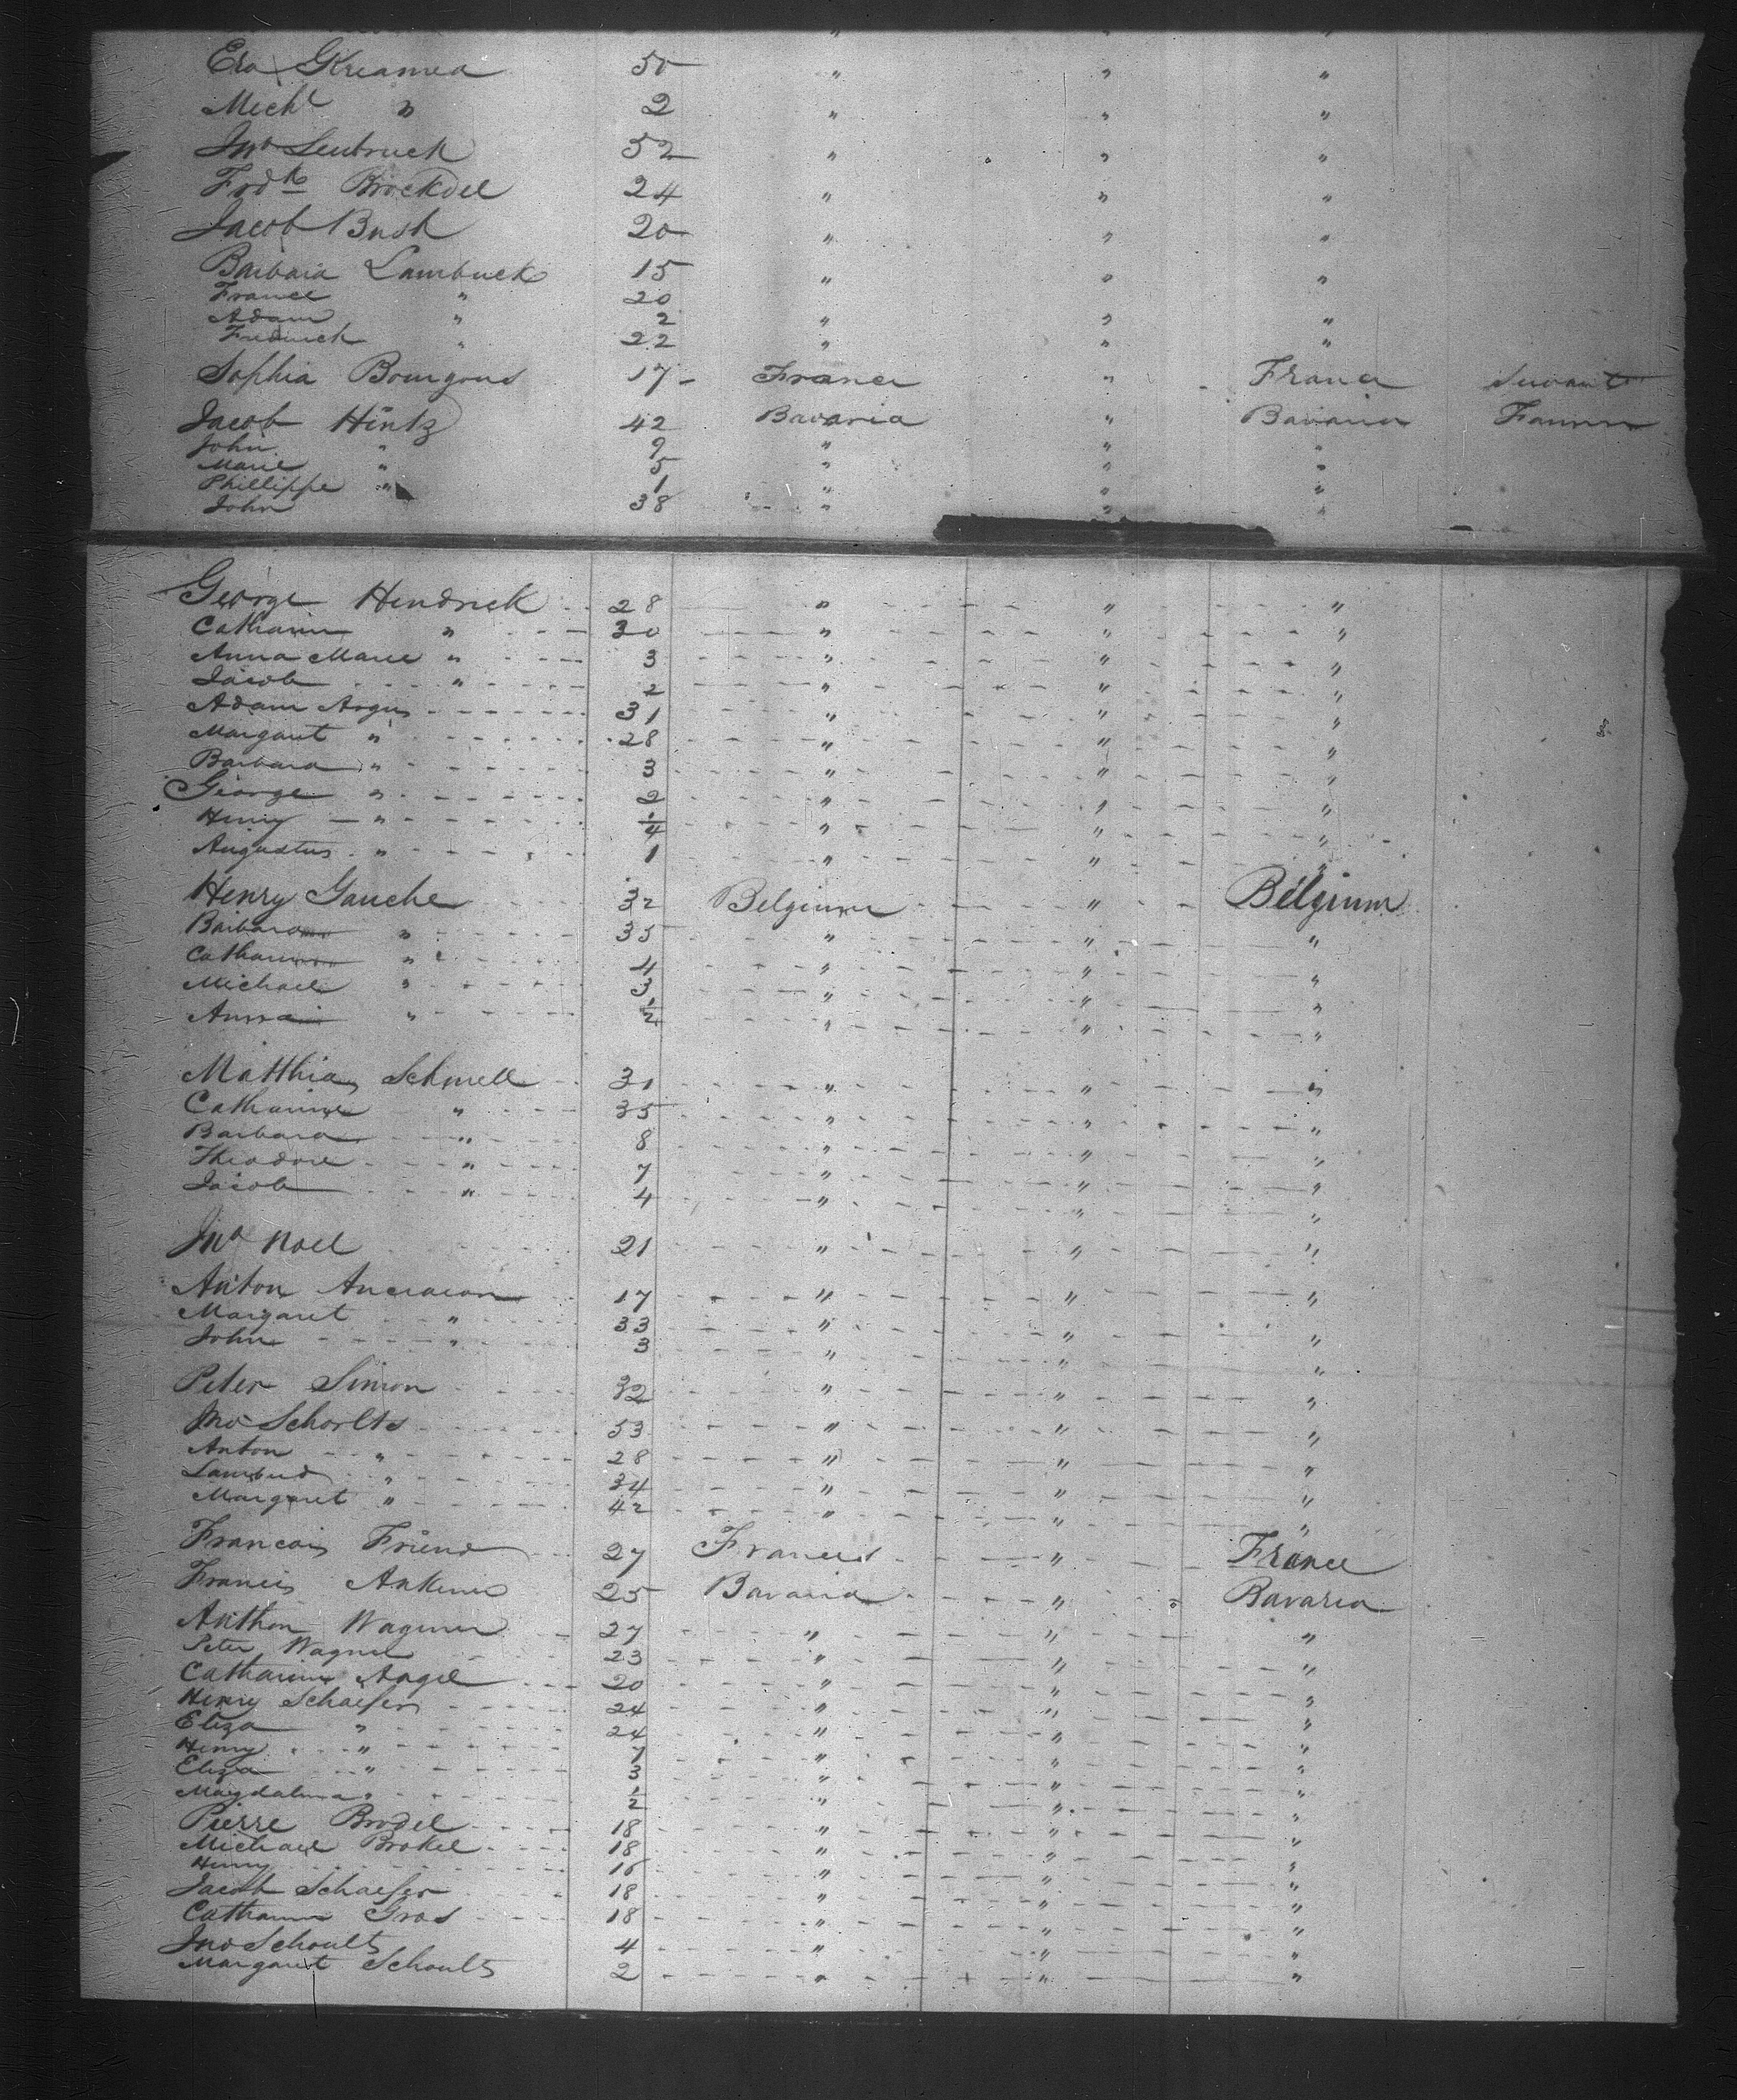 Eva Kreamea 50 " " "
Michl " 2 " " "
Jno Leubruck 52 " " "
Fredk Brockdel 24 " " "
Jacob Bush 20 " " "
Barbara Lambuck 15 " " "
France " 20
Adam " 2 " " "
Fredrick " 22 " " "
Sophia Bourgous 17 France " France Servant
Jacob Hintz 42 Bavaria " Bavaria Farmer
John " 9 " " "
Marie " 5 " " "
Phillippe " 1 " " "
John 38 " " "
George Hendrick 28 " " "
Catharine " 30 " " "
Anna Marie " 3 " " "
Jacob " 2 " " "
Adam Argus 31 " " "
Margaret " 28 " " "
Barbara " 3 " " "
George " 2 " " "
Henry " 1/4 " " "
Augustus " 1 " " "
Henry Gauche 32 Belgium " Belgium
Barbara " 35 " " "
Catharine " 4 " " "
Michael " 3 " " "
Anna " 1/2 " " "
Matthias Schmell 31 " " "
Catharine " 35 " " "
Barbara " 8 " " "
Theodore " 7 " " "
Jacob " 4 " " "
Jno Noel 21 " " "
Anton 17 " " "
Margaret " 33 " " "
John " 3 " " "
Peter Simon 32 " " "
Jno Schorlts 53 " " "
Anton " 28 " " "
Lambud " 34 " " "
Margaret " 42 " " "
Francois Friend 27 France " France
Francis Ankener 25 Bavaria " Bavaria
Anthon Wagner 27 " " "
Peter Wagner 23 " " "
Catharine Angel 20 " " "
Henry Schaefer 24 " " "
Eliza " 24 " " "
Henry " 7 " " "
Eliza " 3 " " "
Magdalena " 1/2 " " "
Pierre Brodel 18 " " "
Michael Brokel 18 " " "
Henry 16 " " "
Jacob Schaefer 18 " " "
Catharine Gros 18 " " "
Jno Schoults 4 " " "
Margaret Schoults 2 " " "